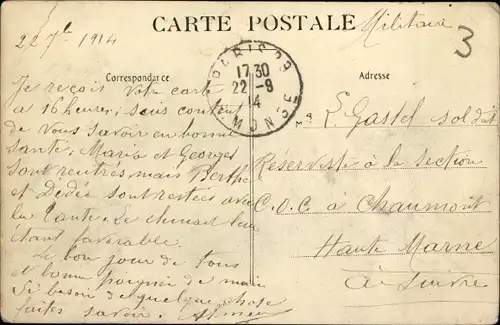 CARTE POSTALE
Militaire
3
22 7bre 1914
Correspondance
Adresse
PARIS 23
17 30
22 - 9
14
R. MONGE
Je reçois votre carte
à 16 heures, suis content
de vous savoir en bonne
santé. Maria et Georges
sont rentrés mais Berthe
et Dédée sont restées avec
la tante. Le climat leur
étant favorable.
Le bon jour de tous
et bonne poignée de main
Si besoin de quelque chose
faites savoir.
Mr E Gastel soldat
Réserviste à la Section
C.O.C à Chaumont
Haute Marne
à suivre